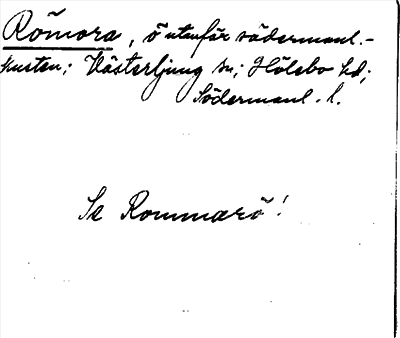 Römora, ö utanför södermanl.-
kusten; Västerljung sn; Hölebo hd;
Södermanl. l.
Se Rommarö!